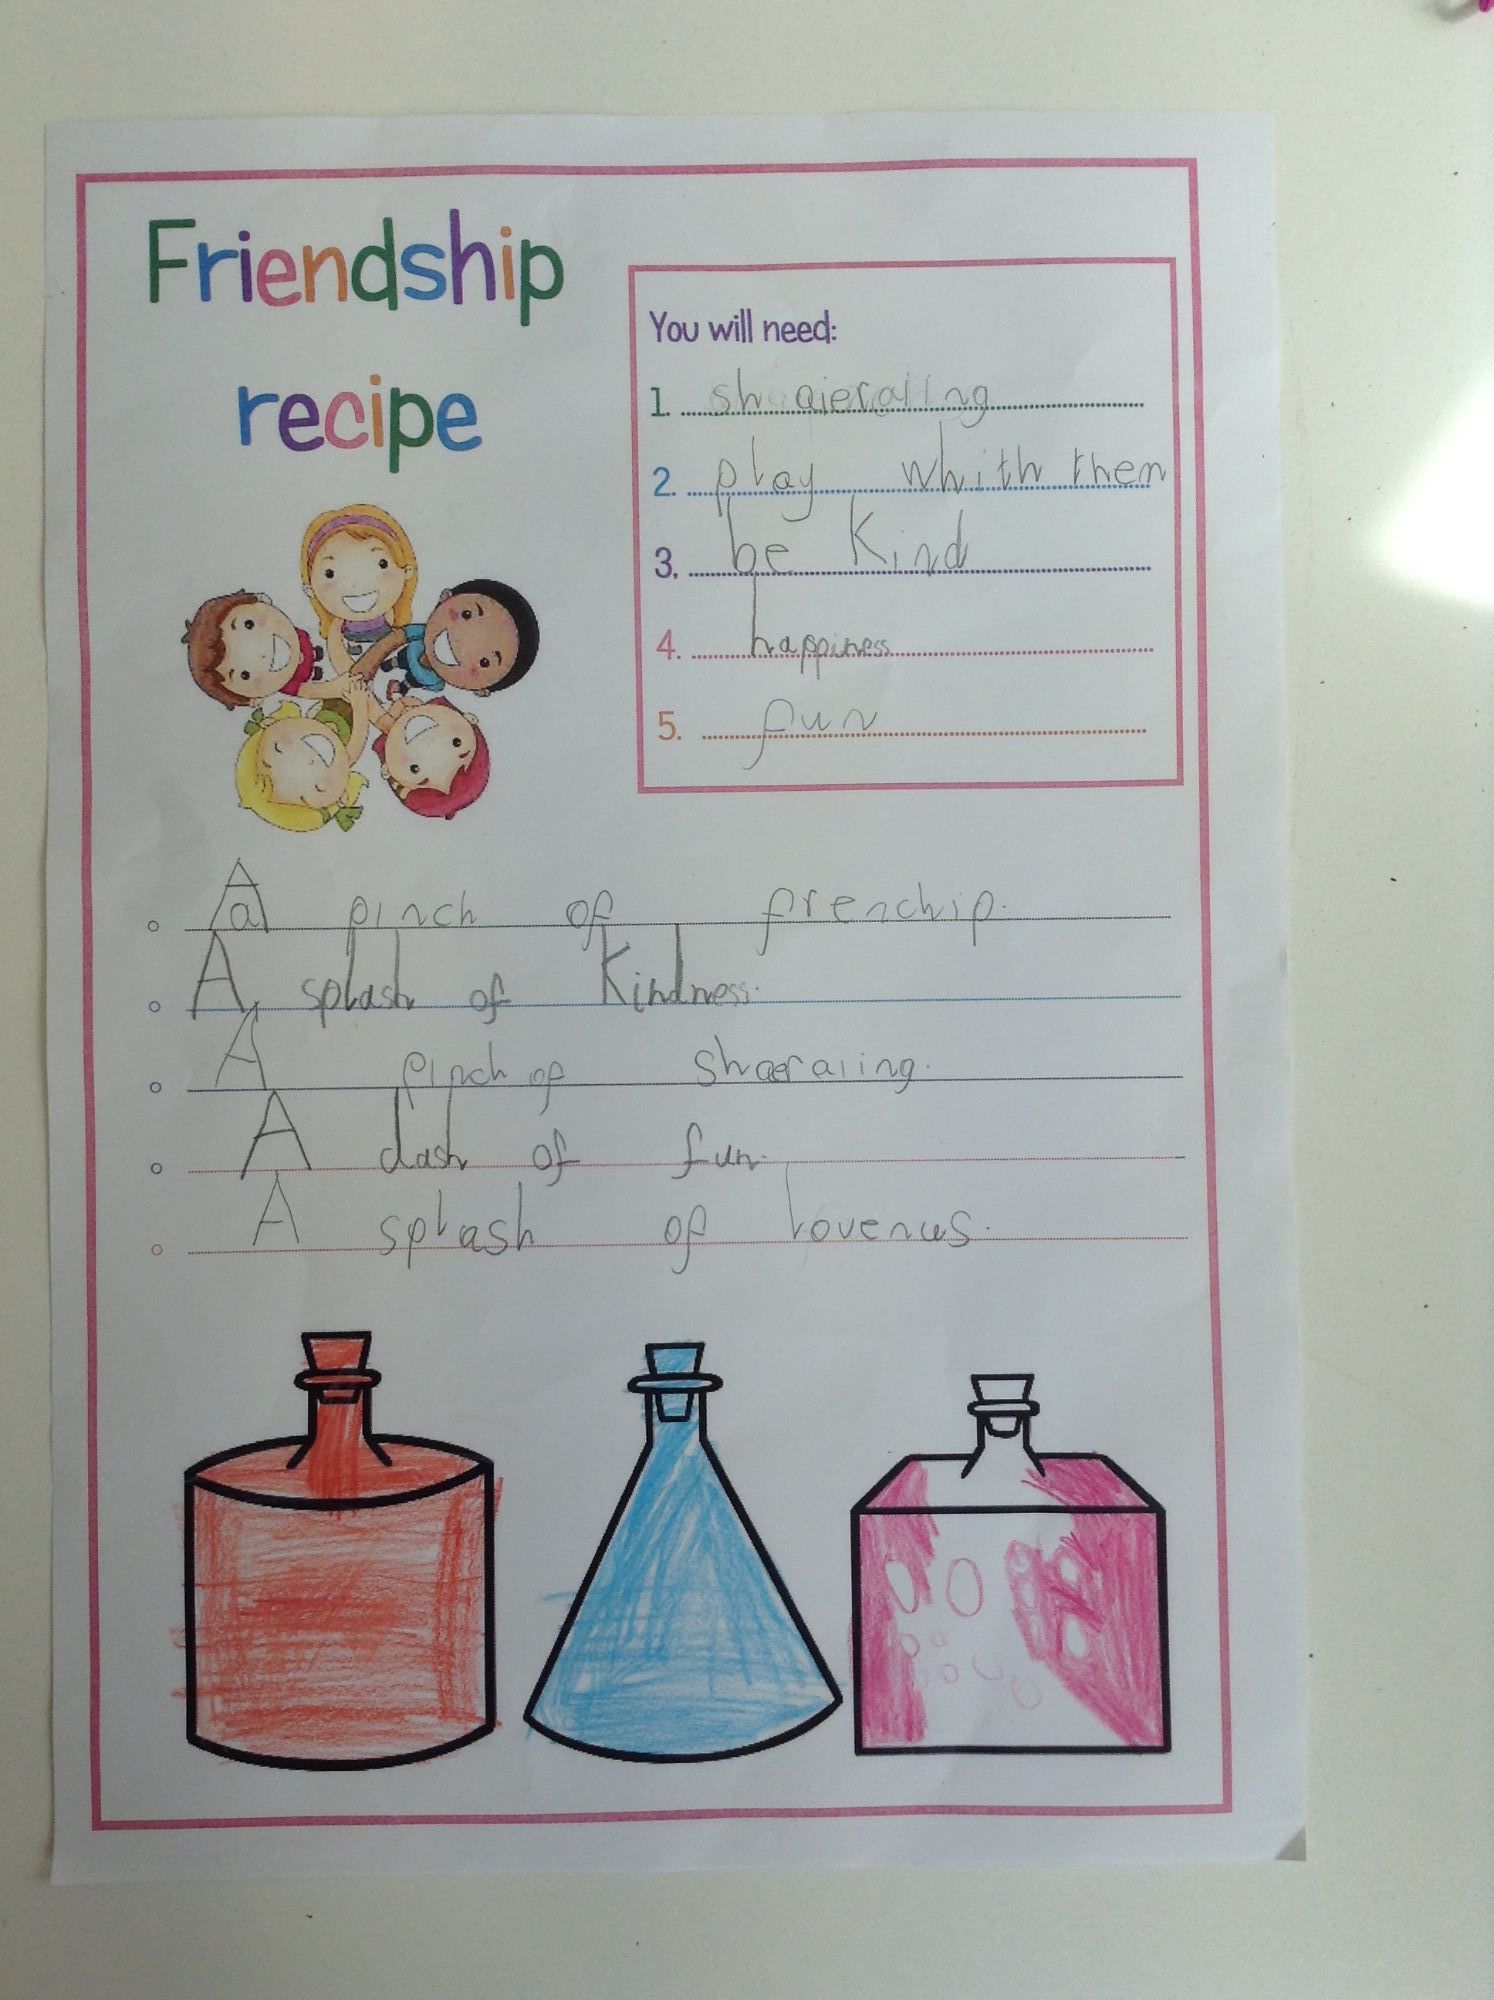 Friendship
recipe
You will need:
1. shaieraiing
2. play whith them
3. be kind
4. happiness
5. fun
A pinch of frenchip.
A splash of kindness.
A pinch of shaeraiing.
A dash of fun.
A splash of lovenus.